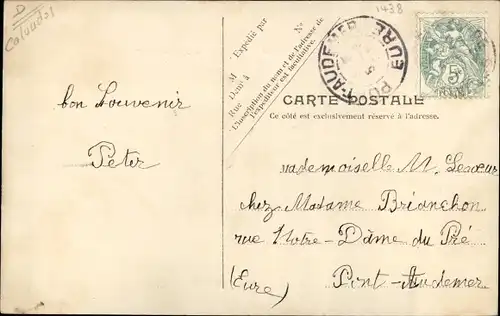 D
Calvados
1438
Expédié par
M
Demt à
Rue
No
L'inscription du nom et de l'adresse de
l'expéditeur est facultative.
PONT-AUDEMER
EURE
5
CARTE POSTALE
Ce côté est exclusivement réservé à l'adresse.
bon Souvenir
Peter
Mademoiselle M.
chez Madame Brianchon
rue Notre-Dâme du Pré
Pont-Audemer
(Eure)